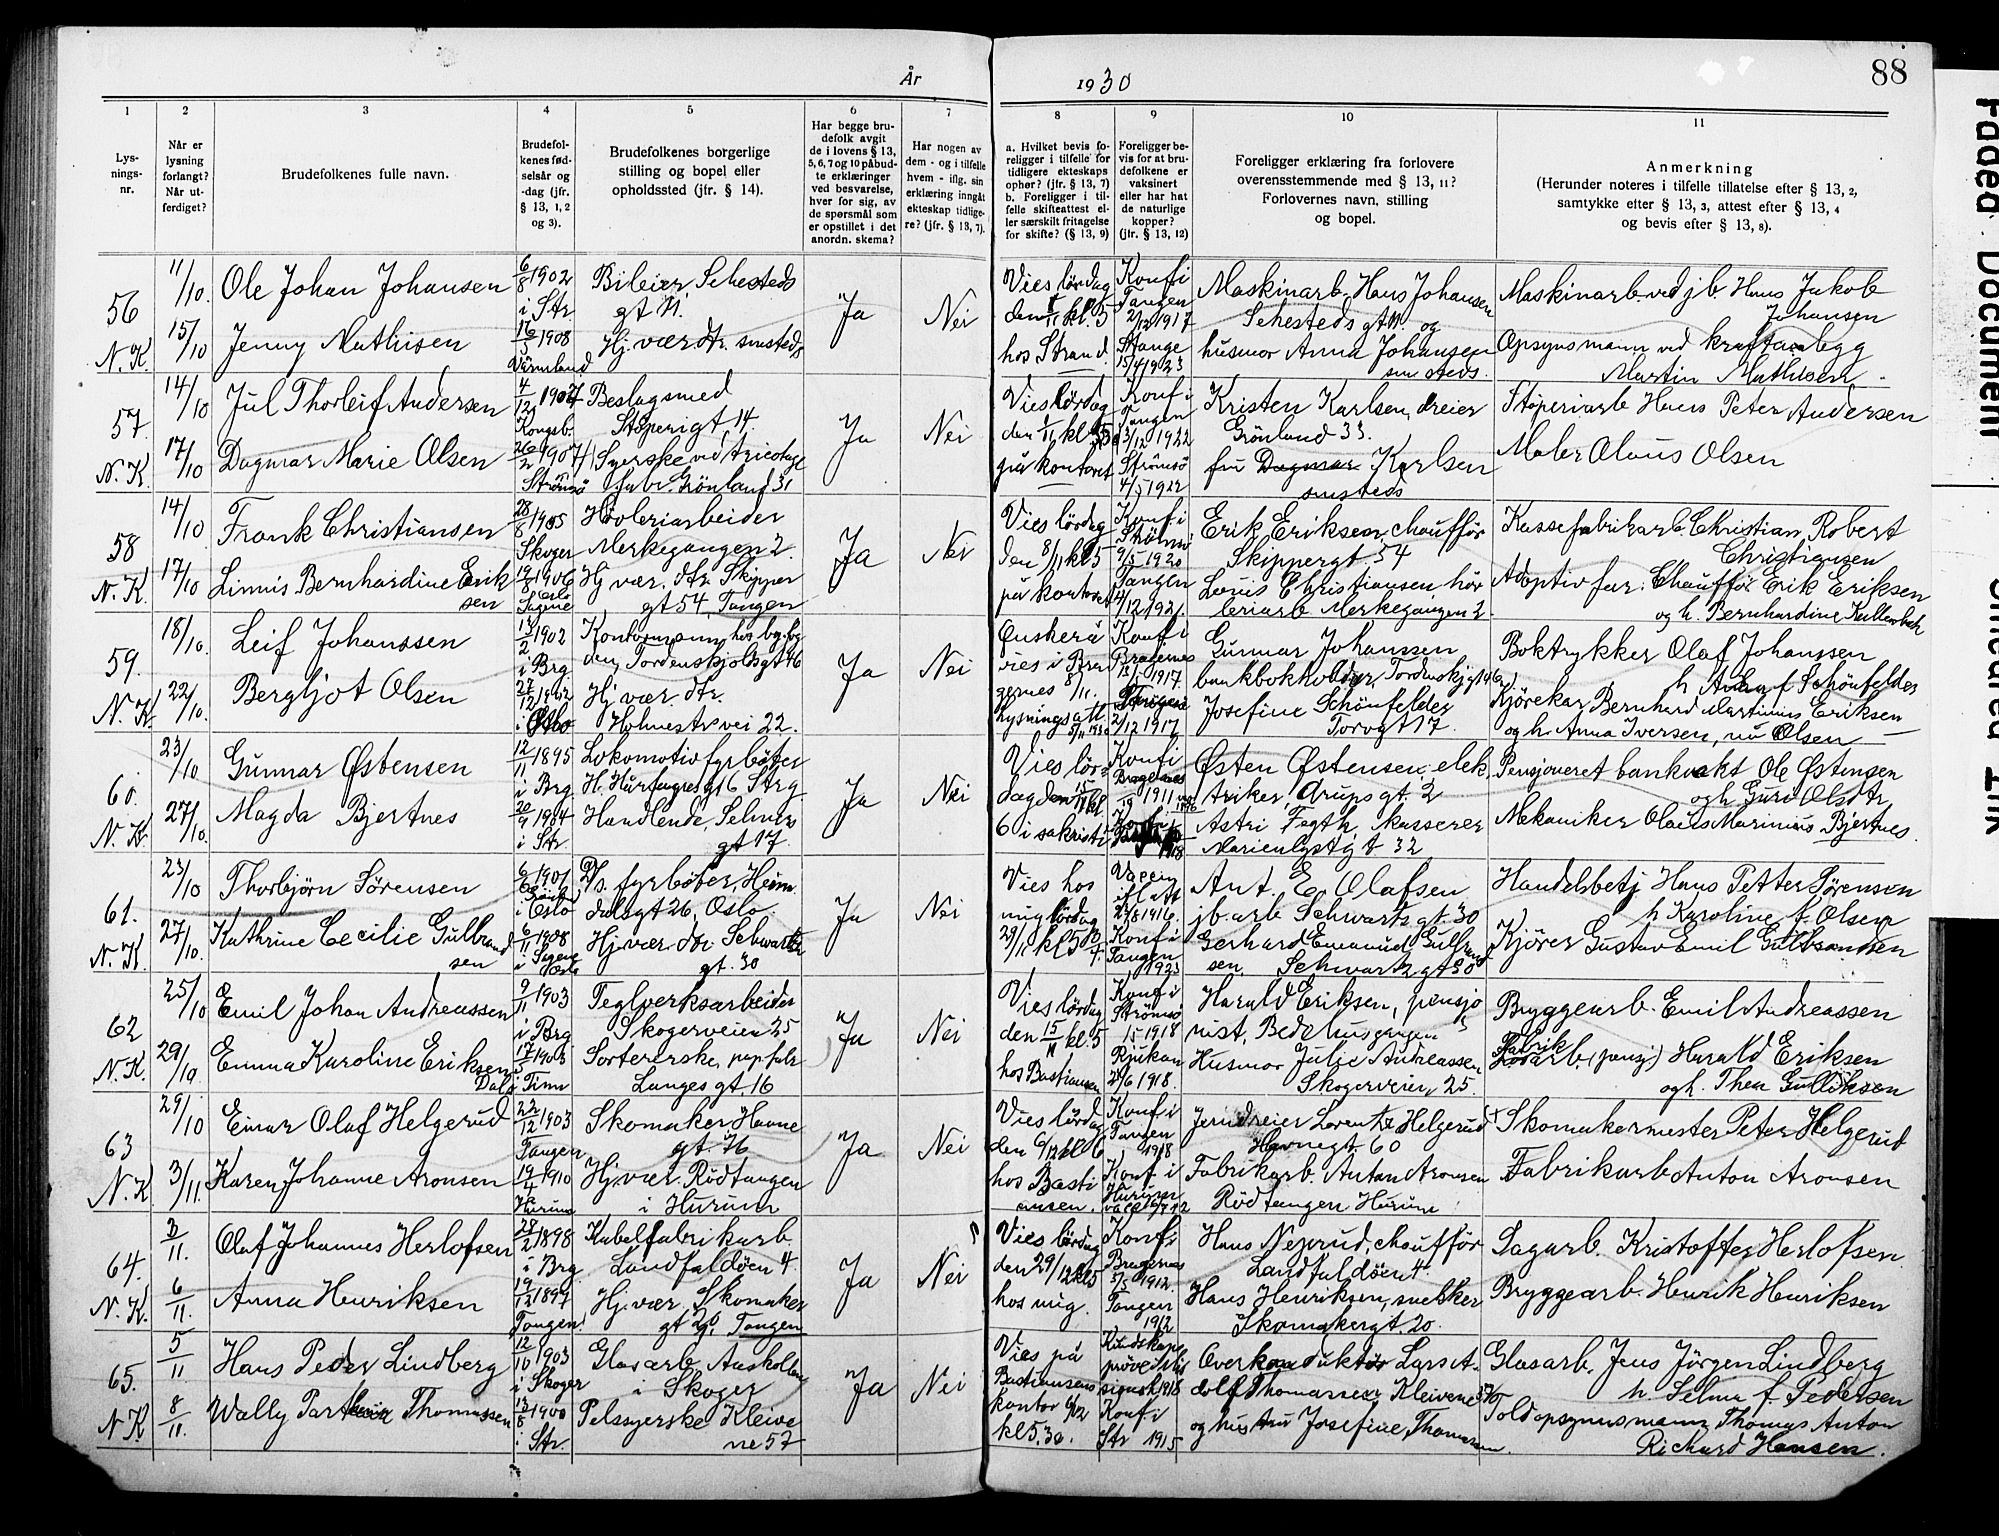 År
1930
88
1
2
3
4
5
6
7
8
9
10
11
Lys-
nings-
nr.
Når er
lysning
forlangt?
Når ut-
ferdiget?
Brudefolkenes fulle navn.
Brudefol-
kenes fød-
selsår og
-dag (jfr.
§ 13, 1, 2
og 3).
Brudefolkenes borgerlige
stilling og bopel eller
opholdssted (jfr. § 14).
Har begge bru-
defolk avgit
de i lovens § 13,
5, 6, 7 og 10 påbud-
te erklæringer
ved besvarelse,
hver for sig, av
de spørsmål som
er opstillet i det
anordn. skema?
Har nogen av
dem - og i tilfelle
hvem - iflg. sin
erklæring inngått
ekteskap tidlige-
re? (jfr. § 13, 7).
a. Hvilket bevis fo-
religger i tilfelle for
tidligere ekteskaps
ophør? (jfr. § 13, 7)
b. Foreligger i til-
felle skifteattest el-
ler særskilt fritagelse
for skifte? (§ 13, 9)
Foreligger be-
vis for at bru-
defolkene er
vaksinert
eller har hat
de naturlige
kopper?
(jfr. § 13, 12)
Foreligger erklæring fra forlovere
overensstemmende med § 13, 11?
Forlovernes navn, stilling
og bopel.
Anmerkning
(Herunder noteres i tilfelle tillatelse efter § 13, 2,
samtykke efter § 13, 3, attest efter § 13, 4
og bevis efter § 13, 8).
56
N. K.
11/10.
15/10
Ole Johan Johansen
Jenny Mathisen
6/8 1902
i Str
16/5 1908
Värmland
Bileier Sehesteds
gt 11.
Hj. vær. dtr. smsteds
Ja
Nei
Vies lördag
den 1/11 kl. 3
hos Strand.
Konf i
Tangen
2/12 1917
Stange
15/4 1923
Maskinarb. Hans Johansen
Sehesteds gt 11. og
husmor Anna Johansen
smsteds.
Maskinarb. ved jb. Hans Jakob
Johansen
Opsynsmann ved kraftanlegg
Martin Mathisen.
57.
N. K.
14/10
17/10
Jul Thorleif Andersen
Dagmar Marie Olsen
4/12 1907
Kongsb.
26/2 1907
Strömsö
Beslagsmed
Stöperigt. 14.
Syerske ved tricotage
fabr. Grönland 31
Ja
Nei
Vies lördag
den 1/11 kl 5
på kontoret
Konf i
Tangen
3/12 1922
Strömsö
4/5 1922
Kristen Karlsen, dreier
Grönland 33.
fru Dagmar Karlsen
smsteds
Støperiarb Hans Peter Andersen
Maler Olaus Olsen
58
N. K.
14/10
17/10
Frank Christiansen
Linnis Bernhardine Erik
sen
28/8 1905
Skoger
19/8 1906
Oslo
Sagene
Høvleriarbeider
Merkegangen 2.
Hj vær. dtr. Skipper
gt 54 Tangen
Ja
Nei
Vies lördag
den 8/11 kl 5
på kontoret
Konf i
Strömsö
9/5 1920
Tangen
4/12 1921.
Erik Eriksen, chaufför
Skippergt 54
Louis Christiansen, høv
leriarb Merkegangen 2.
Kassefabrikarb. Christian Robert
Christiansen
Adoptivfar: Chaufför Erik Eriksen
og h. Bernhardine Kullerbeck
59.
N. K.
18/10.
22/10.
Leif Johanssen
Bergljot Olsen
1902
i Brg
27/12 1902
i Oslo
Kontormann hos byfog
den, Tordenskjoldsgt 46
Hj vær. dtr.
Holmestr vei 22.
Ja
Nei
Önskerå
vies i Bra
gernes 8/11.
Lysningsatt
5/11 1930
Konf i
Bragernes
1917.
Tangen
2/12 1917
Gunnar Johanssen
bankbokholder, Tordenskjgt 46
Josefine Schönfelder
Torvgt 17.
Boktrykker Olaf Johanssen
h f. Schönfelder
Kjörekar Bernhard Martinius Eriksen
og h. Anna Iversen, nu Olsen
60.
N. K.
23/10
27/10.
Gunnar Østensen
Magda Bjertnes
12/11 1895
i Brg
20/9 1904
i Str
Lokomotivfyrböter
H. Hårfagresgt 6 Strg.
Handlende, Selmers
gt 17.
Ja
Nei
Vies lör-
dag den 15/11 kl
6 i sakristi
Konf i
Bragernes
1911
Konf i
1918
Østen Østensen, elek
triker, Arups gt. 2
Astri Fegth, kasserer
Marienlystgt 32
Pensjoneret bankvakt Ole Østensen
og h. Guri Olsdtr.
Mekaniker Olaus Marinius Bjertnes.
61.
N. K.
23/10
27/10.
Thorbjörn Sörensen
Kathrine Cecilie Gulbrand
sen
6/6 1901
i Oslo
6/11 1908
i Sagene
Oslo
D/s. fyrböter, Heim
dalsgt 26, Oslo.
Hj vær dtr. Schwartz
gt. 30
Ja
Nei
Vies hos
mig lördag
29/11 kl 5
Vaccin
iflatt
23/8 1916.
Konf i
Tangen
1923
Ant. E Olafsen
jb. arb Schwartz gt. 30
Gerhard Emanuel Gulbrand
sen, Schwartz gt 30
Handelsbetj Hans Petter Sörensen
h Karoline f. Olsen
Kjörer Gustav Emil Gulbrandsen
62
N. K.
25/10
29/10
Emil Johan Andreassen
Emma Karoline Eriksen
Dale
9/11 1903
i Brg
17/5 1903
i Tinn
Teglverksarbeider
Skogerveien 25
Sortererske, papfabr
Langes gt. 16
Ja
Nei
Vies lördag
den 15/11 kl. 5
hos Bastiansen
Konf i
Strömsö
1918
Rjukan
2/6 1918.
Harald Eriksen, pensjo
nist, Bedehusgangen 5
Husmor Julie Andreassen
Skogerveien 25.
Bryggearb. Emil Andreassen
Fabrik
arb. (pensj) Harald Eriksen
og h. Thea Gulliksen
63
N. K
29/10
3/11.
Einar Olaf Helgerud
Karen Johanne Aronsen
22/12 1903
Tangen
19/4 1910
Hurum
Skomaker, Havne
gt. 76
Hj. vær. Rödtangen
i Hurum
Ja
Nei
Vies lördag
den 6/12 kl 6
hos Basti
ansen.
Konf i
Tangen
1918
Konf. i
Hurum
Jerndreier Lorentz Helgerud
Havnegt 60
Fabrikarb. Anton Aronsen
Rödtangen Hurum
Skomakermester Peter Helgerud
Fabrikarb Anton Aronsen
64.
N. K.
3/11.
6/11.
Olaf Johannes Herlofsen
Anna Henriksen
28/2 1898
i Brg
19/12 1897
Tangen.
Kabelfabrikarb.
Landfaldöen 4.
Hj. vær. Skomaker
gt 20, Tangen
Ja
Nei
Vies lördag
den 29/12 kl 5
hos mig.
Konf i
Bragernes
5/5 1912.
Tangen
1912
Hans Neprud, chaufför
Landfaldöen 4.
Hans Henriksen, snekker
Skomakergt. 20.
Dagarb. Kristoffer Herlofsen
Bryggearb Henrik Henriksen
65.
N K
5/11
8/11.
Hans Peder Lindberg
Wally Thomassen
12/10 1903
i Skoger
13/8 1900
i Str.
Glasarb. Auskollen
i Skoger
Pelssyerske Kleive
ne 57
Ja
Nei
Vies på
Bastiansens
kontor 6/12
kl 5.30.
Konf i
Str 1915
Overkonduktör Lars A-
dolf Thomassen Kleivene 57
og hustru Josefine Thomassen.
Glasarb. Jens Jörgen Lindberg
h. Selma f. Pedersen
Toldopsynsmann Thomas Anton
Richard Hansen.
Faded Document